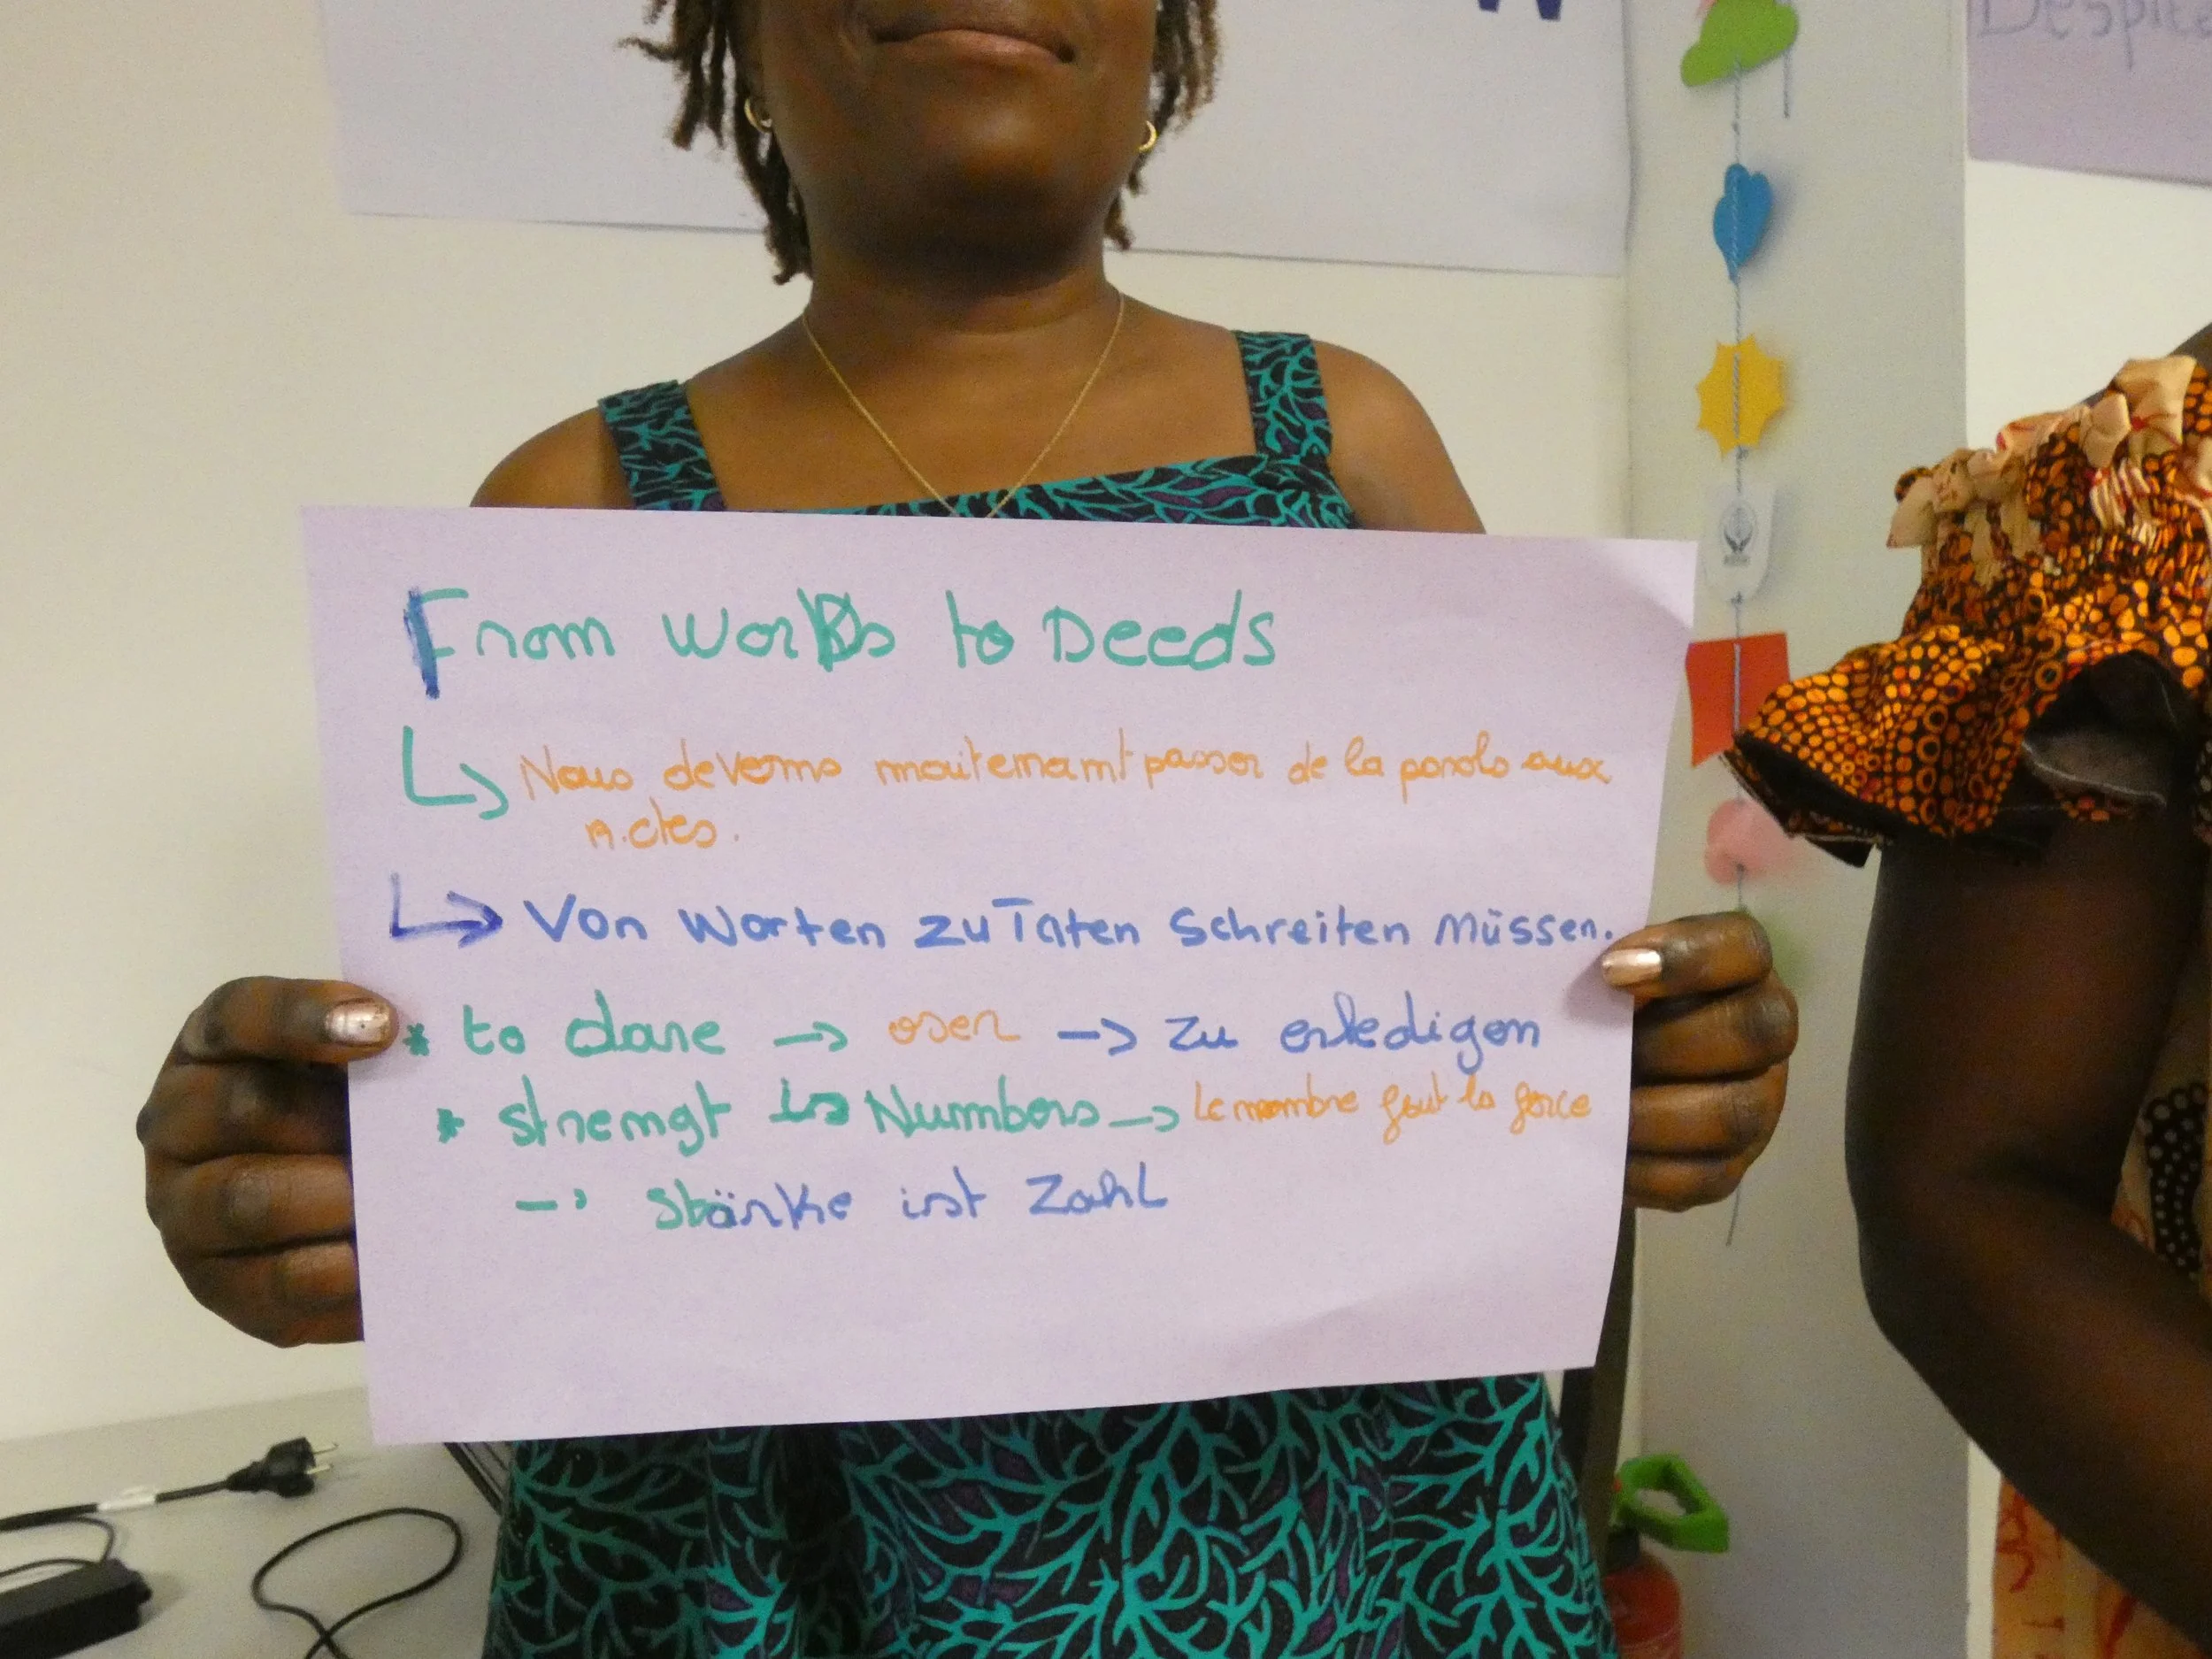 W
Despite
From Words to Deeds
Nous devenns maitenamt passer de la parole aux
Actes.
Von Worten zu Taten Schreiten Müssen.
* to dare -> oser -> zu erledigen
* strengt is Numbers -> Le nombre fait la force
-> Stärke ist Zahl